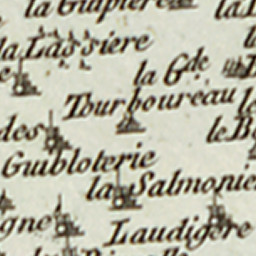 la Guiptere
la Lassiere
la G.de
Tourboureau
des
le B
Guibloterie
la Salmonie
gne
Laudigere